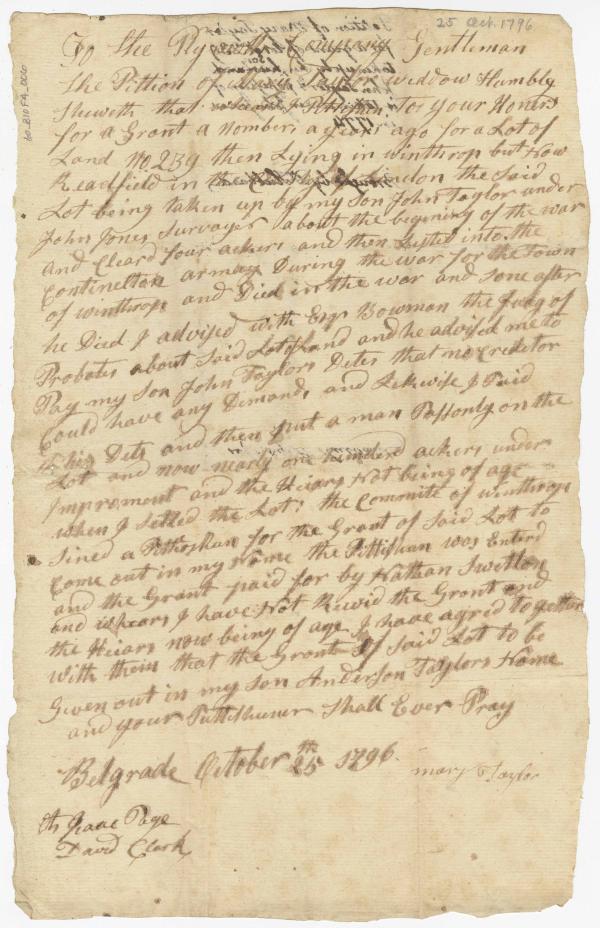 25 Oct. 1796
To the Plymouth Company Gentleman
the Pittion of Mary Taylor widdow Humbly
Sheweth that to your Honers
for a Grant a Nomber a years ago for a Lot of
Land No. 239 then Lying in winthrop but now
Readfield in the the Said
Lot being taken up by my Son John Taylor under
John Jones Survayer about the begening of the war
and Cleard four ackers and then Listed into the
Continelton armay During the war for the Town
of winthrop and Died in the war and Sone after
he Died I advised with Esqr Bowman the Judg of
Probates about Said Lot of Land and he advised me to
Pay my Son John Taylors Detes that no Creditor
Could have any Demand, and Likewise I Paid
his Dets and then put a man on the
Lot and now nearly one hundred ackers under
Improment and the Heiars Not being of age
when I Setled the Lot: the Committe of winthrop
Sined a for the Grant of Said Lot to
Come out in my Name the Pittishan was Enterd
and the Grant paid for by Nathan
and I have Not Recivid the Grant and
the Heiars now being of age I have agred to gether
with them that the Grant of Said Lot to be
Given out in my Son Anderson Taylors Name
and your Pittishuner Shall Ever Pray
Belgrade October 25th 1796.
Mary Taylor
Isaac Page
David Clark